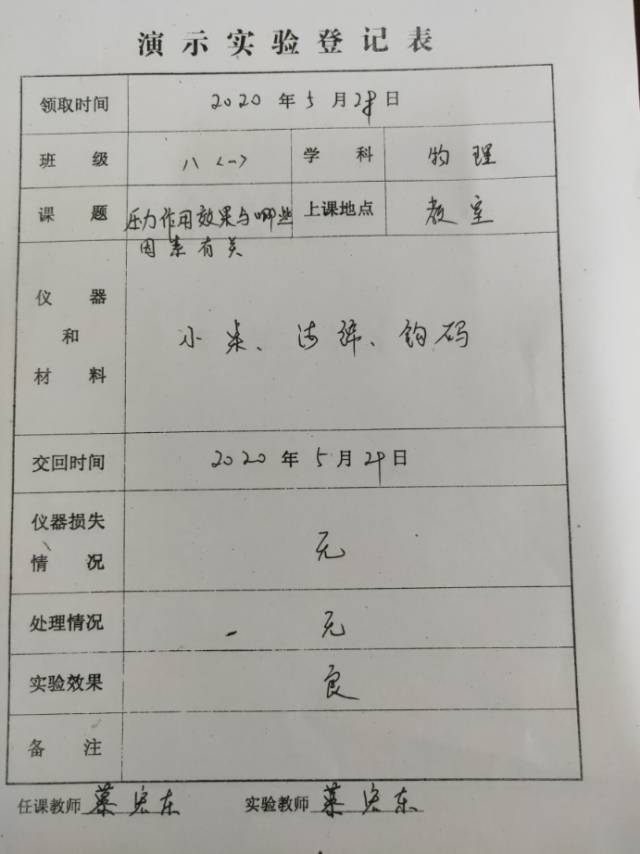 演示实验登记表
领取时间 2020年5月28日
班级 八<一> 学科 物理
课题 压力作用效果与哪些因素有关 上课地点 教室
仪器和材料 小桌、海绵、钩码
交回时间 2020年5月29日
仪器损失情况 无
处理情况 无
实验效果 良
备注
任课教师 东 实验教师 东